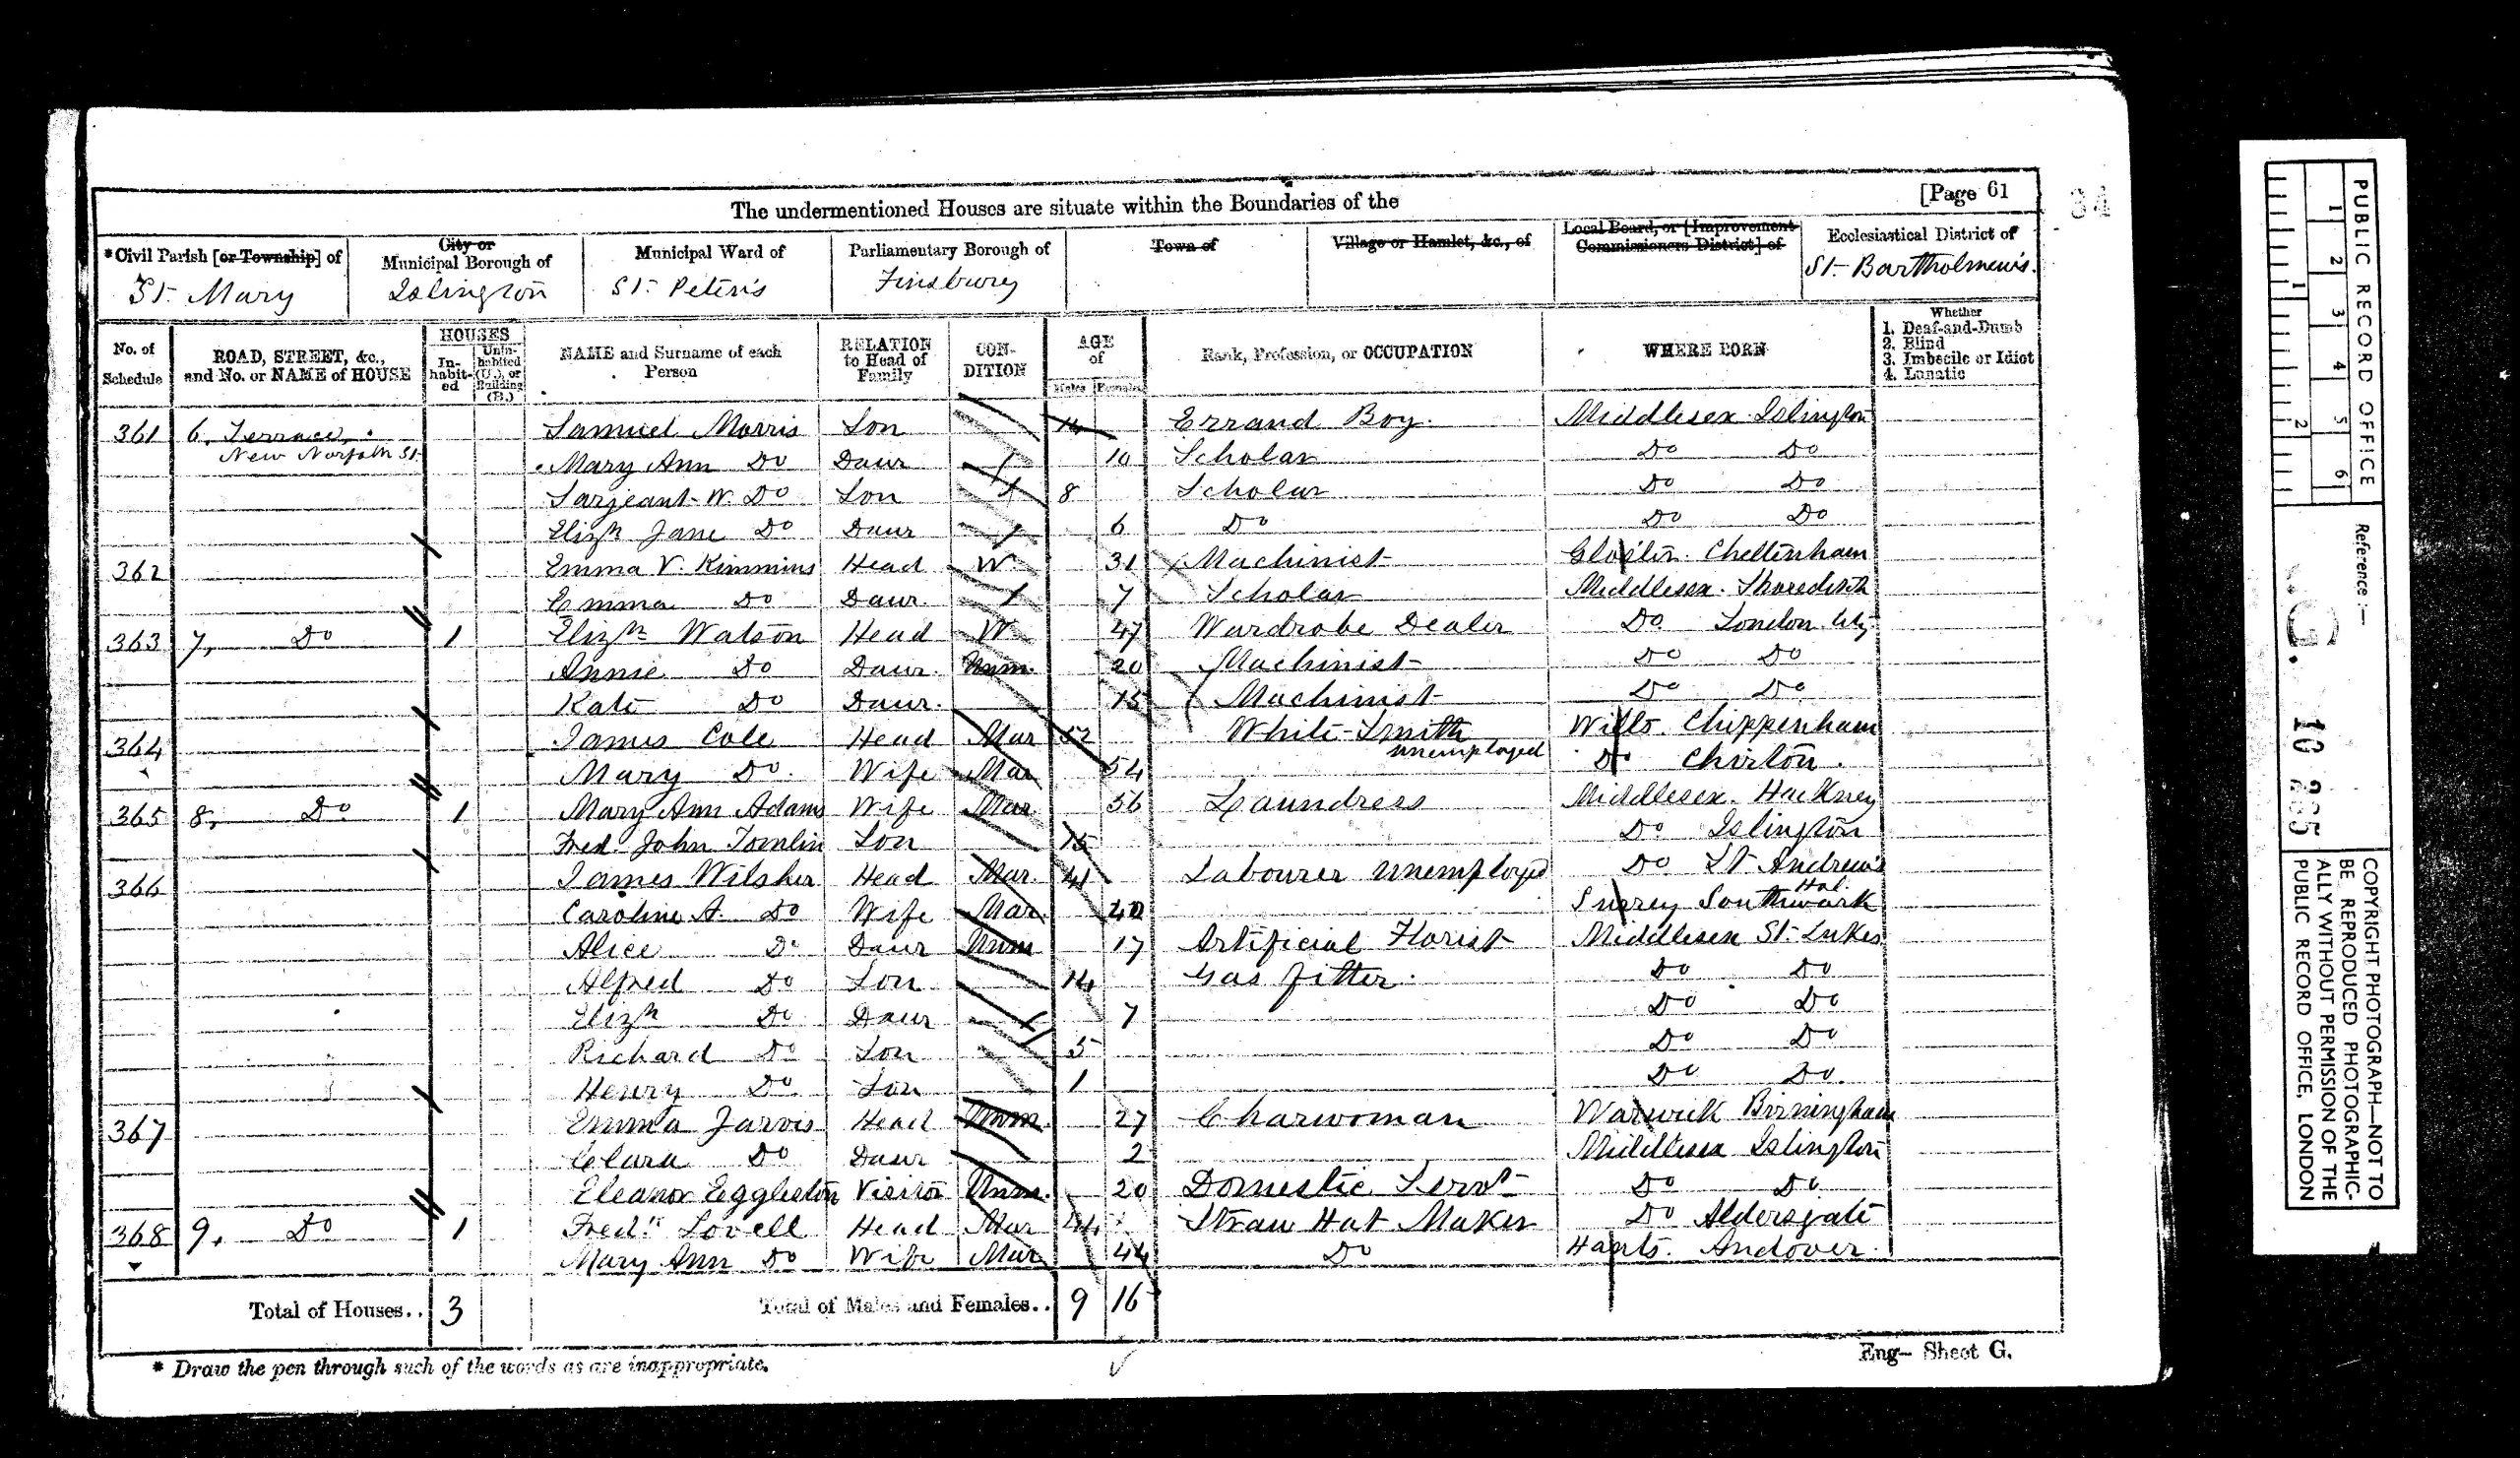 The undermentioned Houses are situate within the Boundaries of the [Page 61
34
*Civil Parish [or Township] of
St. Mary
City or
Municipal Borough of
Islington
Municipal Ward of
St. Peter's
Parliamentary Borough of
Finsbury
Town of
Village or Hamlet, &c., of
Local Board, or [Improvement
Commissioners District] of
Ecclesiastical District of
St. Bartholmew's.
No. of
Schedule
ROAD, STREET, &c.,
and No. or NAME of HOUSE
HOUSES
In-
habit-
ed
Unin-
habited
(U.), or
Building
(B.)
NAME and Surname of each
Person
RELATION
to Head of
Family
CON-
DITION
AGE
of
Males Females
Rank, Profession, or OCCUPATION
WHERE BORN
Whether
1. Deaf-and-Dumb
2. Blind
3. Imbecile or Idiot
4. Lunatic
361 6, Terrace, Samuel Morris Son 14 Errand Boy. Middlesex Islington
New Norfolk St. Mary Ann Do Daur 10 Scholar Do Do
Sarjeant W. Do Son 8 Scholar Do Do
Elizth Jane Do Daur 6 Do Do Do
362 Emma V. Kimmins Head W 31 Machinist Gloster. Cheltenham
Emma Do Daur. 7 Scholar Middlesex. Shoreditch
363 7, Do 1 Elizth Watson Head W 47 Wardrobe Dealer Do London City
Annie Do Daur. Unm. 20 Machinist Do Do
Kate Do Daur. 15 Machinist Do Do
364 James Cole Head Mar 52 White-Smith Wilts. Chippenham
unemployed
Mary Do Wife Mar 54 Do Chirton.
365 8, Do 1 Mary Ann Adams Wife Mar. 56 Laundress Middlesex. Hackney
Fred. John Tomlin Son 15 Do Islington
366 James Wilsher Head Mar. 41 Labourer unemployed Do St Andrew's
Hol.
Caroline A. Do Wife Mar. 40 Surrey Southwark
Alice Do Daur Unm 17 Artificial Florist Middlesex St. Lukes
Alfred Do Son 14 Gas fitter. Do Do
Elizth Do Daur 7 Do Do
Richard Do Son 5 Do Do
Henry Do Son 1 Do Do.
367 Emma Jarvis Head Unm. 27 Charwoman Warwick Birmingham
Clara Do Daur 2 Middlesex Islington
Eleanor Eggleston Visitor Unm. 20 Domestic Servt Do Do
368 9, Do 1 Fredk Lovell Head Mar 44 Straw Hat Maker Do Aldersgate
Mary Ann Do Wife Mar 44 Do Hants. Andover.
Total of Houses.. 3 Total of Males and Females.. 9 16
* Draw the pen through such of the words as are inappropriate.
Eng— Sheet G.
PUBLIC RECORD OFFICE
1 2 3 4 5 6
1 2
Reference :—
10 265
COPYRIGHT PHOTOGRAPH—NOT TO
BE REPRODUCED PHOTOGRAPHIC-
ALLY WITHOUT PERMISSION OF THE
PUBLIC RECORD OFFICE, LONDON